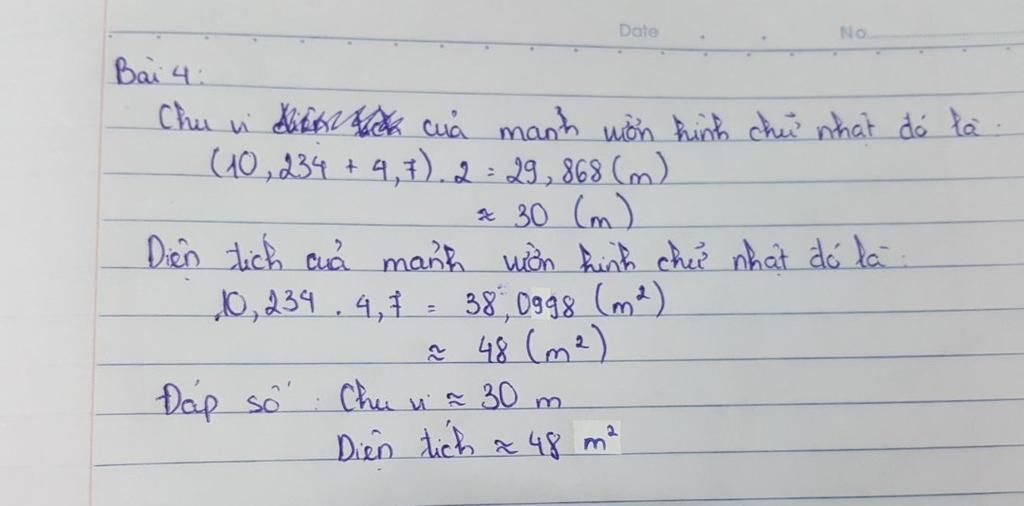 Date . . No
Bài 4:
Chu vi của mảnh vườn hình chữ nhật đó là:
(10,234 + 4,7). 2 = 29,868 (m)
≈ 30 (m)
Diện tích của mảnh vườn hình chữ nhật đó là:
10,234 . 4,7 = 38,0998 (m²)
≈ 48 (m²)
Đáp số: Chu vi ≈ 30 m
Diện tích ≈ 48 m²